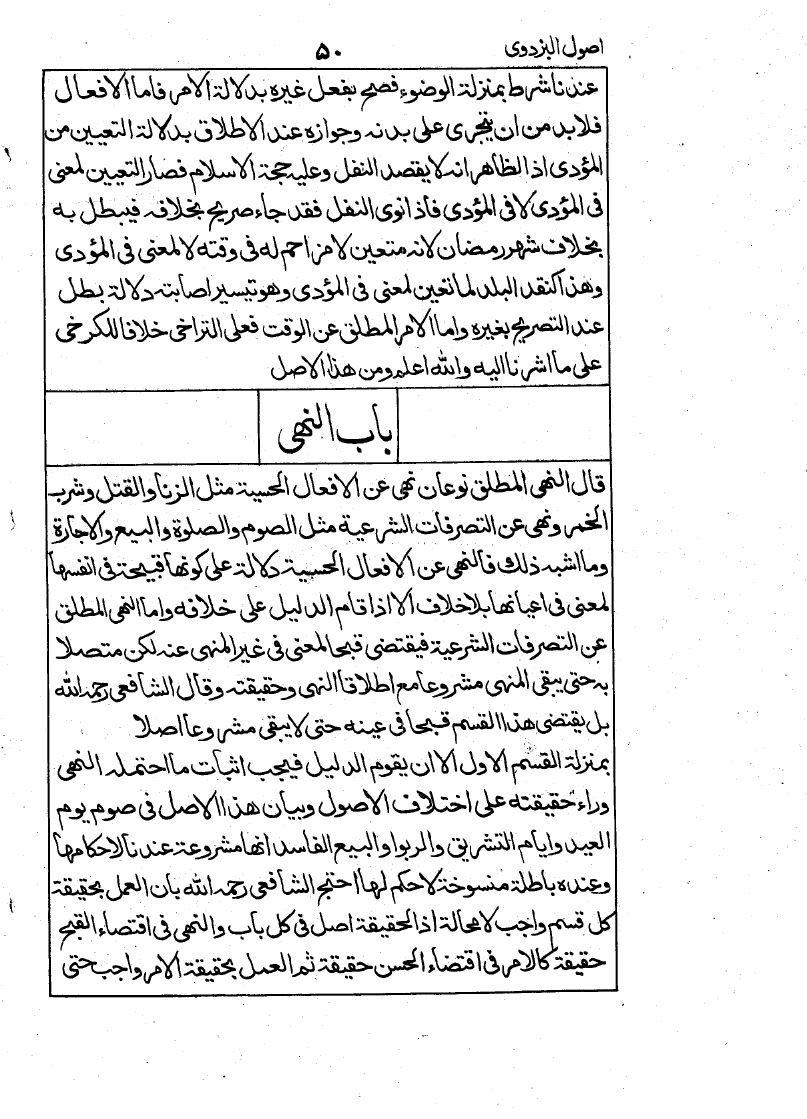 اصول البزدوی
۵۰
عندنا شرط بمنزلة الوضوء فصح بفعل غيره بدلالة الامر فاما الافعال
فلا بد من ان يجرى على بدنه وجوازه عند الاطلاق بدلالة التعيين من
المؤدى اذ الظاهر انه لا يقصد النفل وعليه حجة الاسلام فصار التعيين لمعنى
فى المؤدى لا فى المؤدى فاذا نوى النفل فقد جاء صريح بخلافه فيبطل به
بخلاف شهر رمضان لانه متعين لا مزاحم له فى وقته لا لمعنى فى المؤدى
وهذا كنقد البلد لما تعين لمعنى فى المؤدى وهو تيسير اصابته دلالة بطل
عند التصريح بغيره واما الامر المطلق عن الوقت فعلى التراخى خلافا للكرخى
على ما اشرنا اليه والله اعلم ومن هذا الاصل
باب النهى
قال النهى المطلق نوعان نهى عن الافعال الحسية مثل الزنا والقتل وشرب
الخمر ونهى عن التصرفات الشرعية مثل الصوم والصلوة والبيع والاجارة
وما اشبه ذلك فالنهى عن الافعال الحسية دلالة على كونها قبيحة فى انفسها
لمعنى فى اعيانها بلا خلاف الا اذا قام الدليل على خلافه واما النهى المطلق
عن التصرفات الشرعية فيقتضى قبحا لمعنى فى غير المنهى عنه لكن متصلا
به حتى يبقى المنهى مشروعا مع اطلاق النهى وحقيقته وقال الشافعى رحمه الله
بل يقتضى هذا القسم قبحا فى عينه حتى لا يبقى مشروعا اصلا
بمنزلة القسم الاول الا ان يقوم الدليل فيجب اثبات ما احتمله النهى
وراء حقيقته على اختلاف الاصول وبيان هذا الاصل فى صوم يوم
العيد وايام التشريق والربوا والبيع الفاسد انها مشروعة عندنا لاحكامها
وعنده باطلة منسوخة لا حكم لها احتج الشافعى رحمه الله بان العمل بحقيقة
كل قسم واجب لا محالة اذ الحقيقة اصل فى كل باب والنهى فى اقتضاء القبح
حقيقة كالامر فى اقتضاء الحسن حقيقة ثم العمل بحقيقة الامر واجب حتى